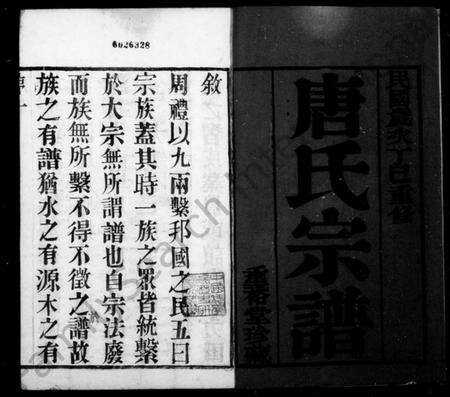 唐氏宗譜
6026328
敘
周禮以九兩繫邦國之民五曰
宗族蓋其時一族之眾皆統繫
於大宗無所謂譜也自宗法廢
而族無所繫不得不徵之譜故
族之有譜猶水之有源木之有